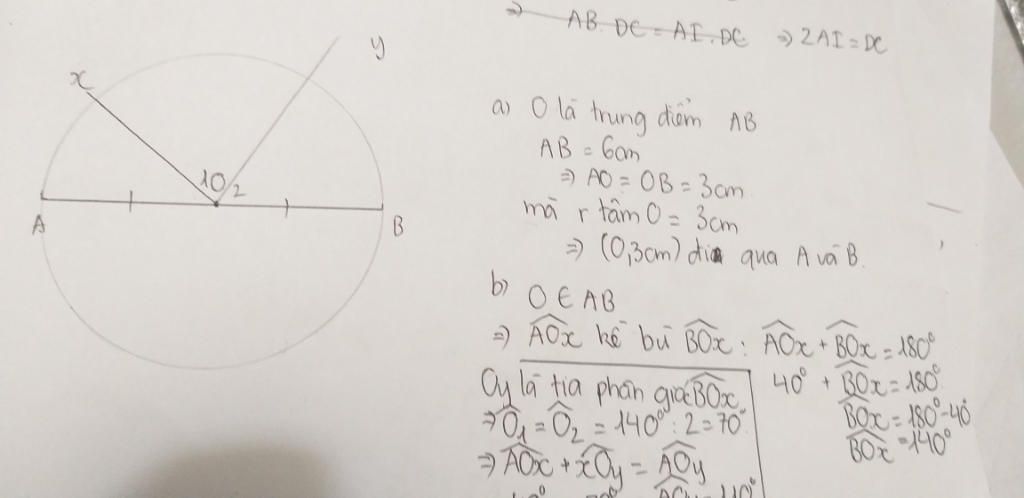 ⇒ AB.DC = AI.DC ⇒ 2AI = DC
y
x
1 O 2
A
B
a) O là trung điểm AB
AB = 6cm
⇒ AO = OB = 3cm
mà r tâm O = 3cm
⇒ (O,3cm) đi qua A và B.
b) O ∈ AB
⇒ AOx kề bù BOx : AOx + BOx = 180°
40° + BOx = 180°
BOx = 180° - 40°
BOx = 140°
Oy là tia phân giác BOx
⇒ O1 = O2 = 140° : 2 = 70°
⇒ AOx + xOy = AOy